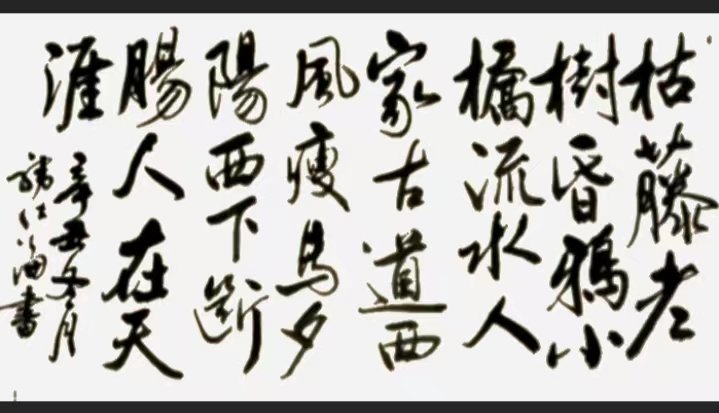 枯藤老
樹昏鴉小
橋流水人
家古道西
風瘦馬夕
陽西下斷
腸人在天
涯
辛丑冬月
海書